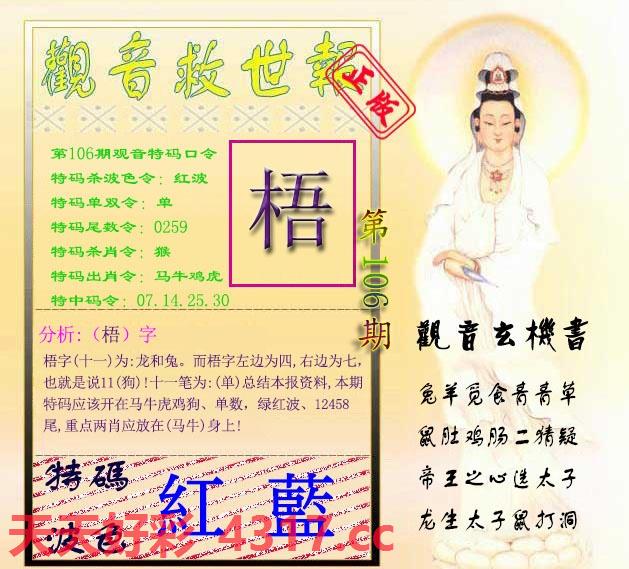 觀音救世報
正版
第106期观音特码口令
特码杀波色令: 红波
特码单双令: 单
特码尾数令: 0259
特码杀肖令: 猴
特码出肖令: 马牛鸡虎
特中码令: 07.14.25.30
梧
第106期
分析:（梧）字
梧字(十一)为:龙和兔。而梧字左边为四,右边为七,
也就是说11(狗)!十一笔为:(单)总结本报资料,本期
特码应该开在马牛虎鸡狗、单数，绿红波、12458
尾,重点两肖应放在(马牛)身上!
特碼
波色
紅 藍
觀音玄機書
兔羊觅食青青草
鼠肚鸡肠二猜疑
帝王之心选太子
龙生太子鼠打洞
天天好彩 4317.cc